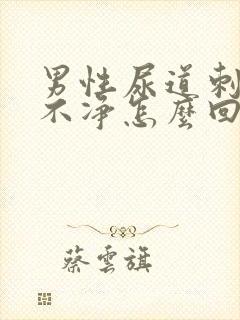 男性尿道刺
不净怎麼回
蔡雲旗